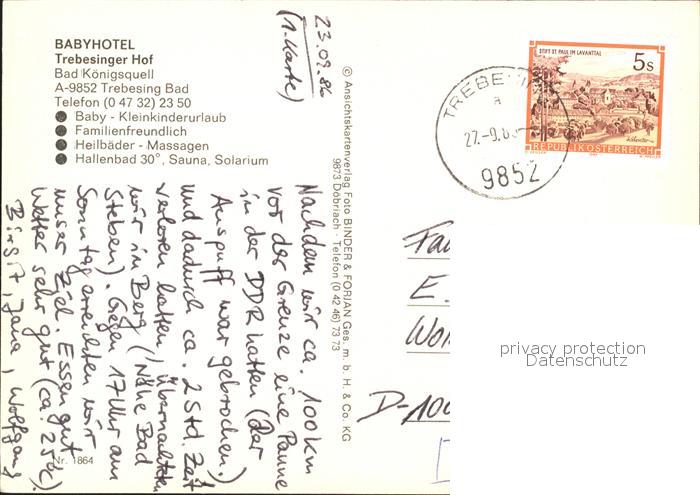 BABYHOTEL
Trebesinger Hof
Bad Königsquell
A-9852 Trebesing Bad
Telefon (0 47 32) 23 50
Baby - Kleinkinderurlaub
Familienfreundlich
Heilbäder - Massagen
Hallenbad 30°, Sauna, Solarium
23.09.86
(1. Karte)
Nachdem wir ca. 100 km
vor der Grenze eine Panne
in der DDR hatten (der
Auspuff war gebrochen.)
und dadurch ca. 2 Std. Zeit
verloren hatten, übernachteten
wir in Berg (Nähe Bad
Steben). Gegen 17 Uhr am
Sonntag erreichten wir
unser Ziel. Essen gut
Wetter sehr gut (ca. 25°C).
Birgit, Jana, Wolfgang
Nr. 1864
© Ansichtskartenverlag Foto BINDER & FORIAN Ges. m. b. H. & Co. KG
9873 Döbriach · Telefon (0 42 46) 73 73
STIFT ST. PAUL IM LAVANTTAL
5 S
REPUBLIK ÖSTERREICH
a
9852
E.
D-100
privacy protection
Datenschutz